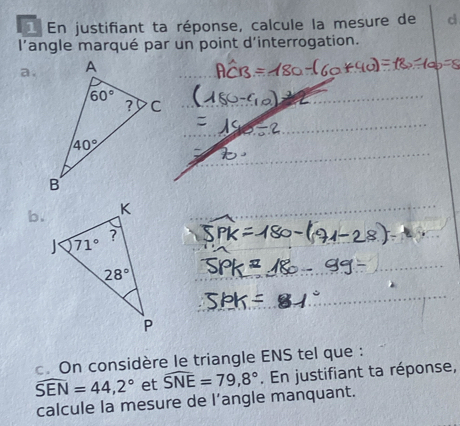 1 En justifiant ta réponse, calcule la mesure de
l'angle marqué par un point d'interrogation.
a.
A
60°
? C
40°
B
ACB = 180-(60+40)=180-100=8
(180-40)÷2
= 140÷2
= 70.
b.
K
J 71° ?
28°
P
JPK = 180-(71-28)-
JPK = 180 - 99 =
JPK = 81°
c. On considère le triangle ENS tel que :
SEN = 44,2° et SNE = 79,8°. En justifiant ta réponse,
calcule la mesure de l'angle manquant.